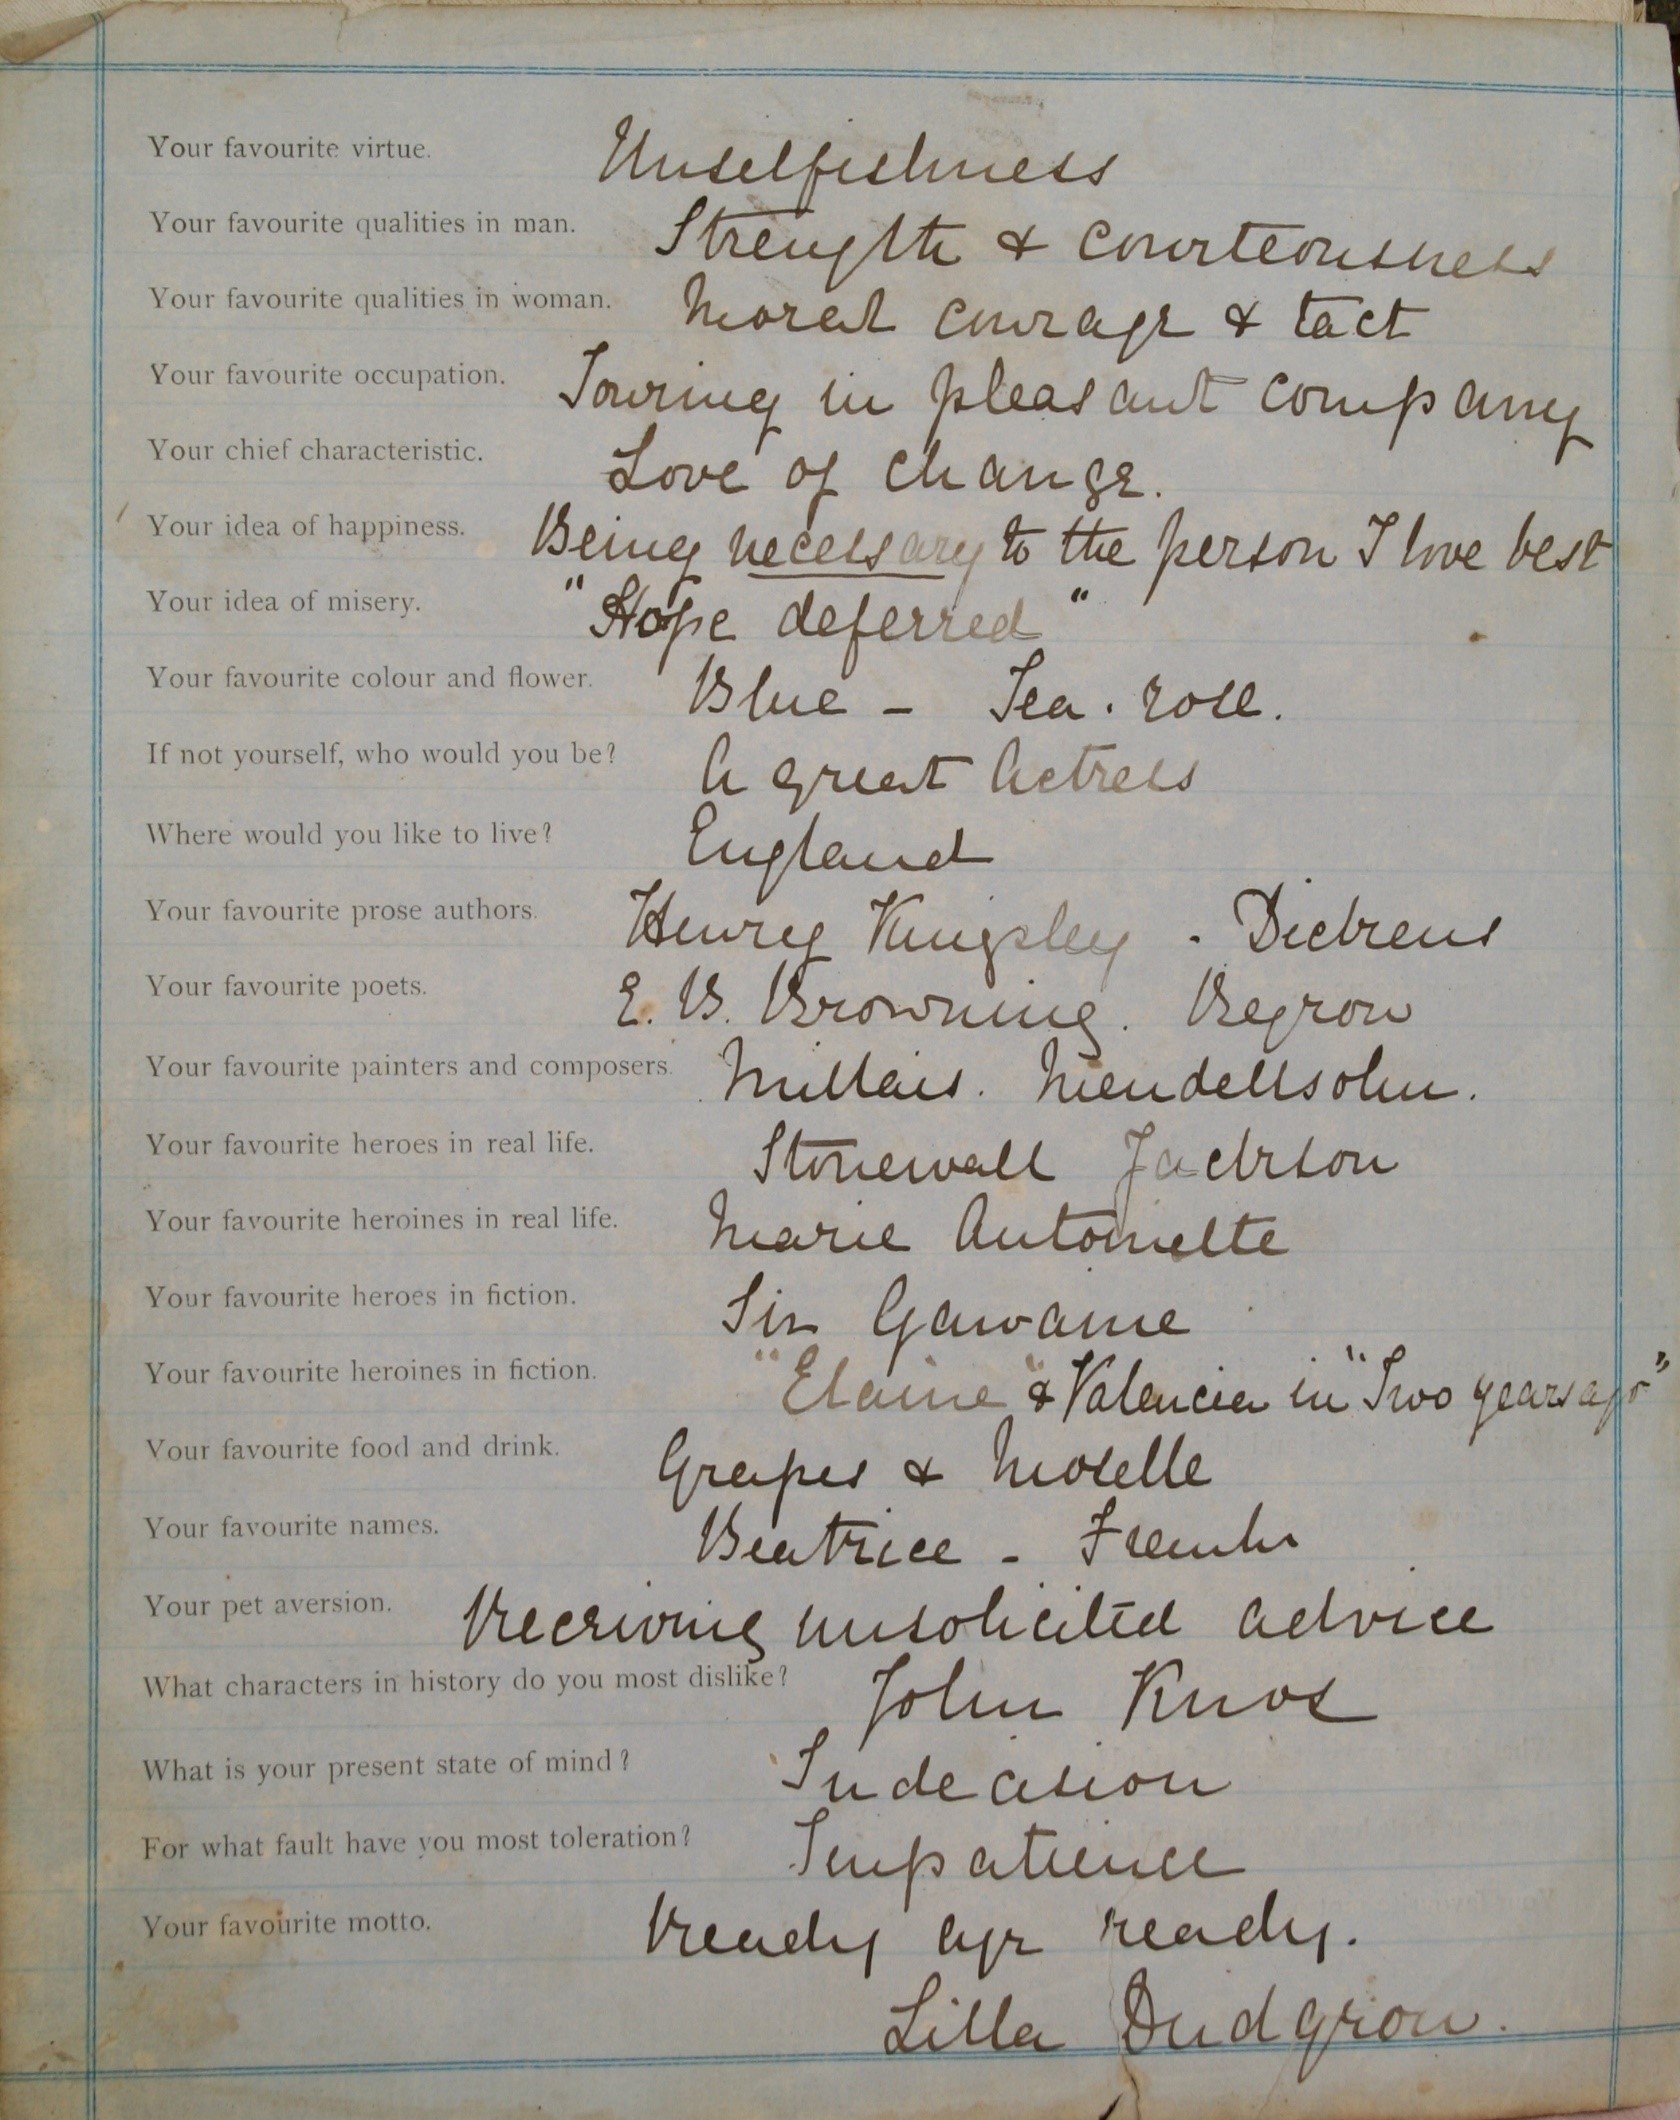 Your favourite virtue. Unselfishness
Your favourite qualities in man. Strength & courteousness
Your favourite qualities in woman. Moral courage & tact
Your favourite occupation. Touring in pleasant company
Your chief characteristic. Love of change.
Your idea of happiness. Being necessary to the person I love best
Your idea of misery. "Hope deferred"
Your favourite colour and flower. Blue - Tea. rose.
If not yourself, who would you be? A great Actress
Where would you like to live? England
Your favourite prose authors. Henry Kingsley . Dickens
Your favourite poets. E. B. Browning. Byron
Your favourite painters and composers. Millais. Mendellsohn.
Your favourite heroes in real life. Stonewall Jackson
Your favourite heroines in real life. Marie Antoinette
Your favourite heroes in fiction. Sir Gawaine
Your favourite heroines in fiction. "Elaine" & Valencia in "Two years ago"
Your favourite food and drink. Grapes & Moselle
Your favourite names. Beatrice - Frank
Your pet aversion. Receiving unsolicited advice
What characters in history do you most dislike? John Knox
What is your present state of mind? Indecision
For what fault have you most toleration? Impatience
Your favourite motto. Ready aye ready.
Lilla